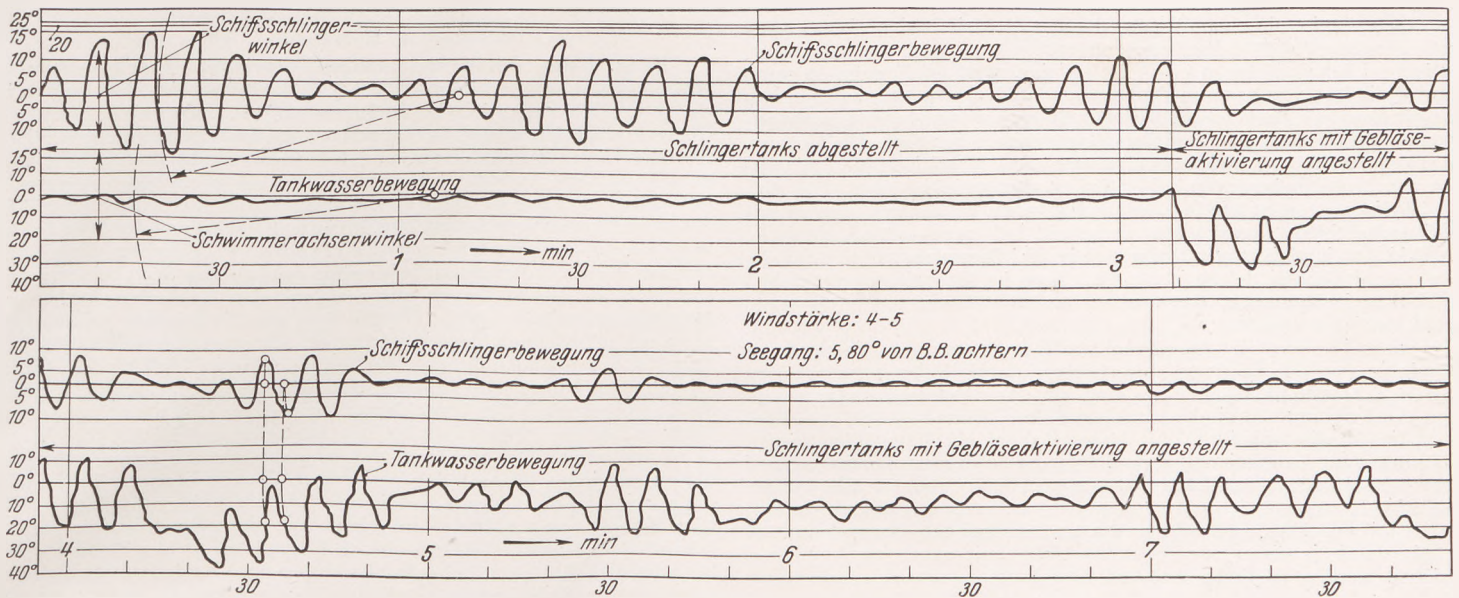 25°
15°
10°
5°
0°
5°
10°
15°
10°
0°
10°
20°
30°
40°
20
Schiffsschlinger-
winkel
Schiffsschlingerbewegung
Schlingertanks abgestellt
Schlingertanks mit Gebläse-
aktivierung angestellt
Tankwasserbewegung
Schwimmerachsenwinkel
min
30 1 30 2 30 3 30
Windstärke: 4-5
Seegang: 5, 80° von B.B. achtern
10°
5°
0°
5°
10°
Schiffsschlingerbewegung
Schlingertanks mit Gebläseaktivierung angestellt
Tankwasserbewegung
10°
0°
10°
20°
30°
40°
min
4 5 6 7
30 30 30 30